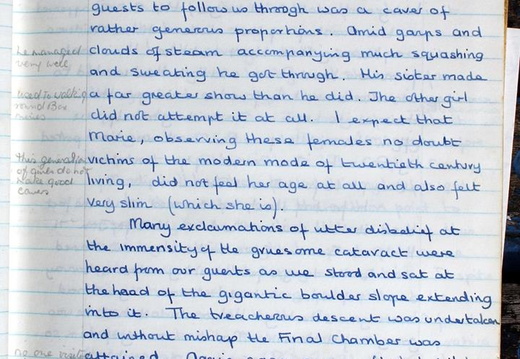 guests to follow us through was a caver of
rather generous proportions. Amid gasps and
clouds of steam accompanying much squashing
he managed
very well
and sweating he got through. His sister made
used to walking
round Box
a far greater show than he did. The other girl
did not attempt it at all. I expect that
Marie, observing these females no doubt
this generation
of girls do not
make good
cavers
victims of the modern mode of twentieth century
living, did not feel her age at all and also felt
very slim (which she is).
Many exclamations of utter disbelief at
the immensity of the gruesome cataract were
heard from our guests as we stood and sat at
the head of the gigantic boulder slope extending
into it. The treacherous descent was undertaken
and without mishap the Final Chamber was
no one
attained.